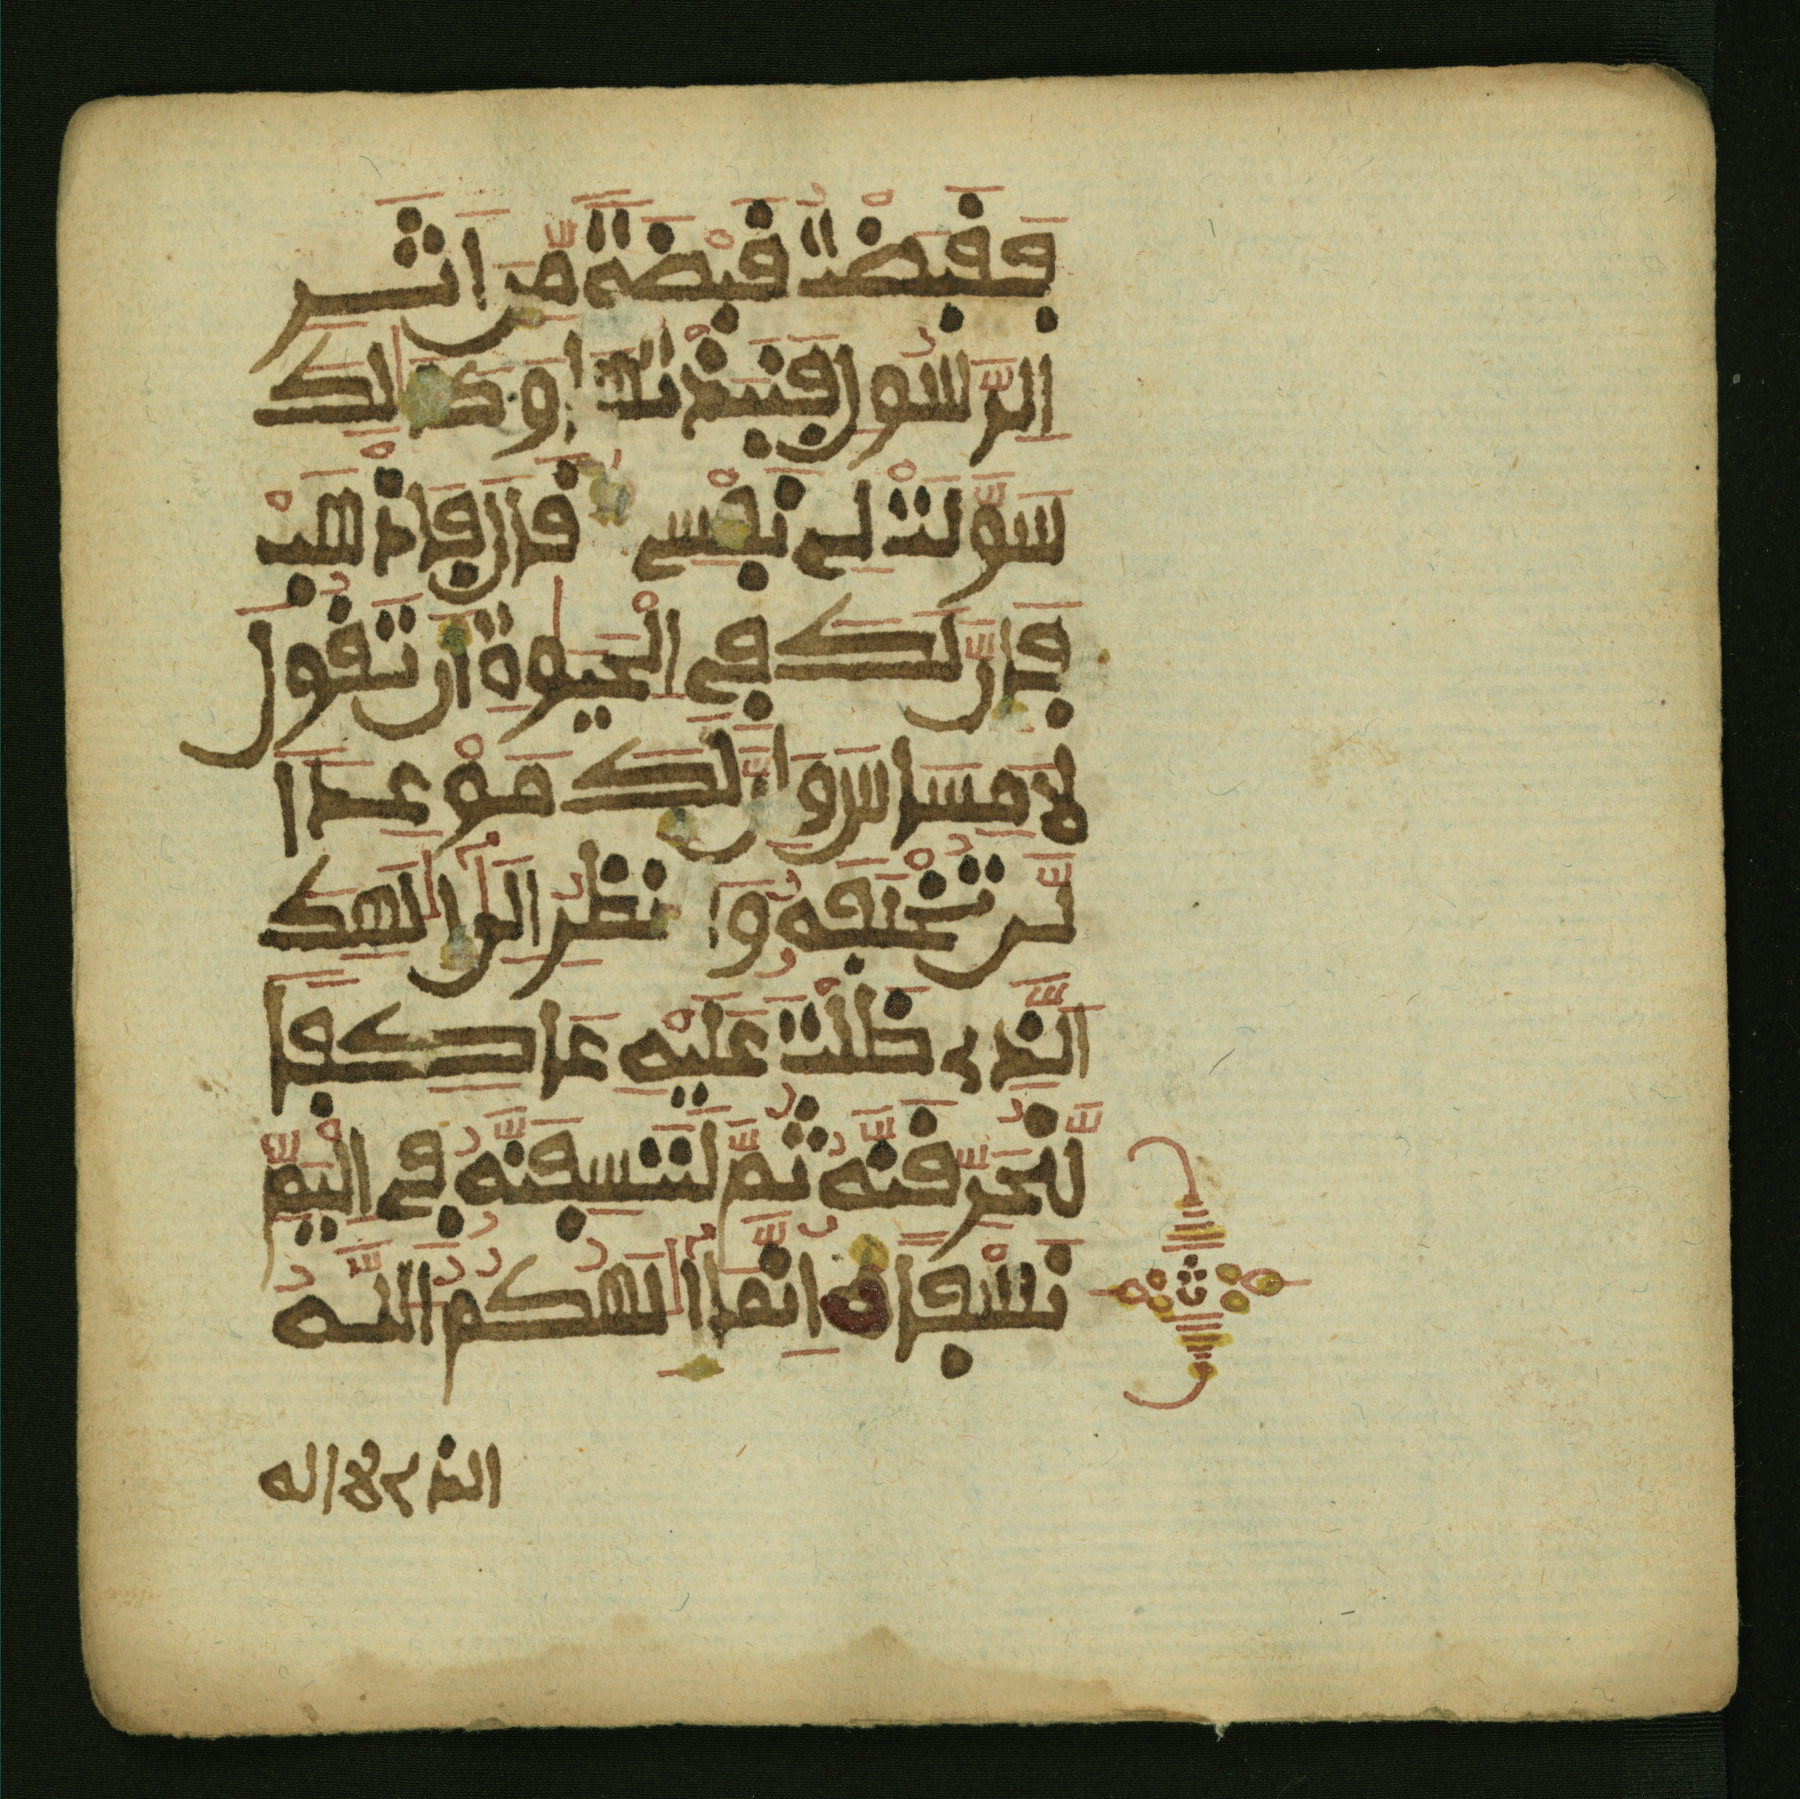 فَقَبَضْتُ قَبْضَةً مِّنَ اَثَرِ
اِ۬لرَّسُولِ فَنَبَذْتُهَا وَكَذَٰلِكَ
سَوَّلَتْ لِے نَفْسِے قَالَ فَاذْهَبْ
فَإِنَّ لَكَ فِے اِ۬لْحَيَوٰةِ أَن تَقُولَ
لَا مِسَاسَ وَإِنَّ لَكَ مَوْعِداً
لَّن تُخْلَفَهُۥ وَانظُرِ اِلَىٰٓ إِلَٰهِكَ
اَ۬لذِے ظَلْتَ عَلَيْهِ عَاكِفاً
لَّنُحَرِّقَنَّهُۥ ثُمَّ لَنَنسِفَنَّهُۥ فِے اِ۬لْيَمِّ
نَسْفاً اِنَّمَآ إِلَٰهُكُمُ اُ۬للَّهُ
الذے لا اله